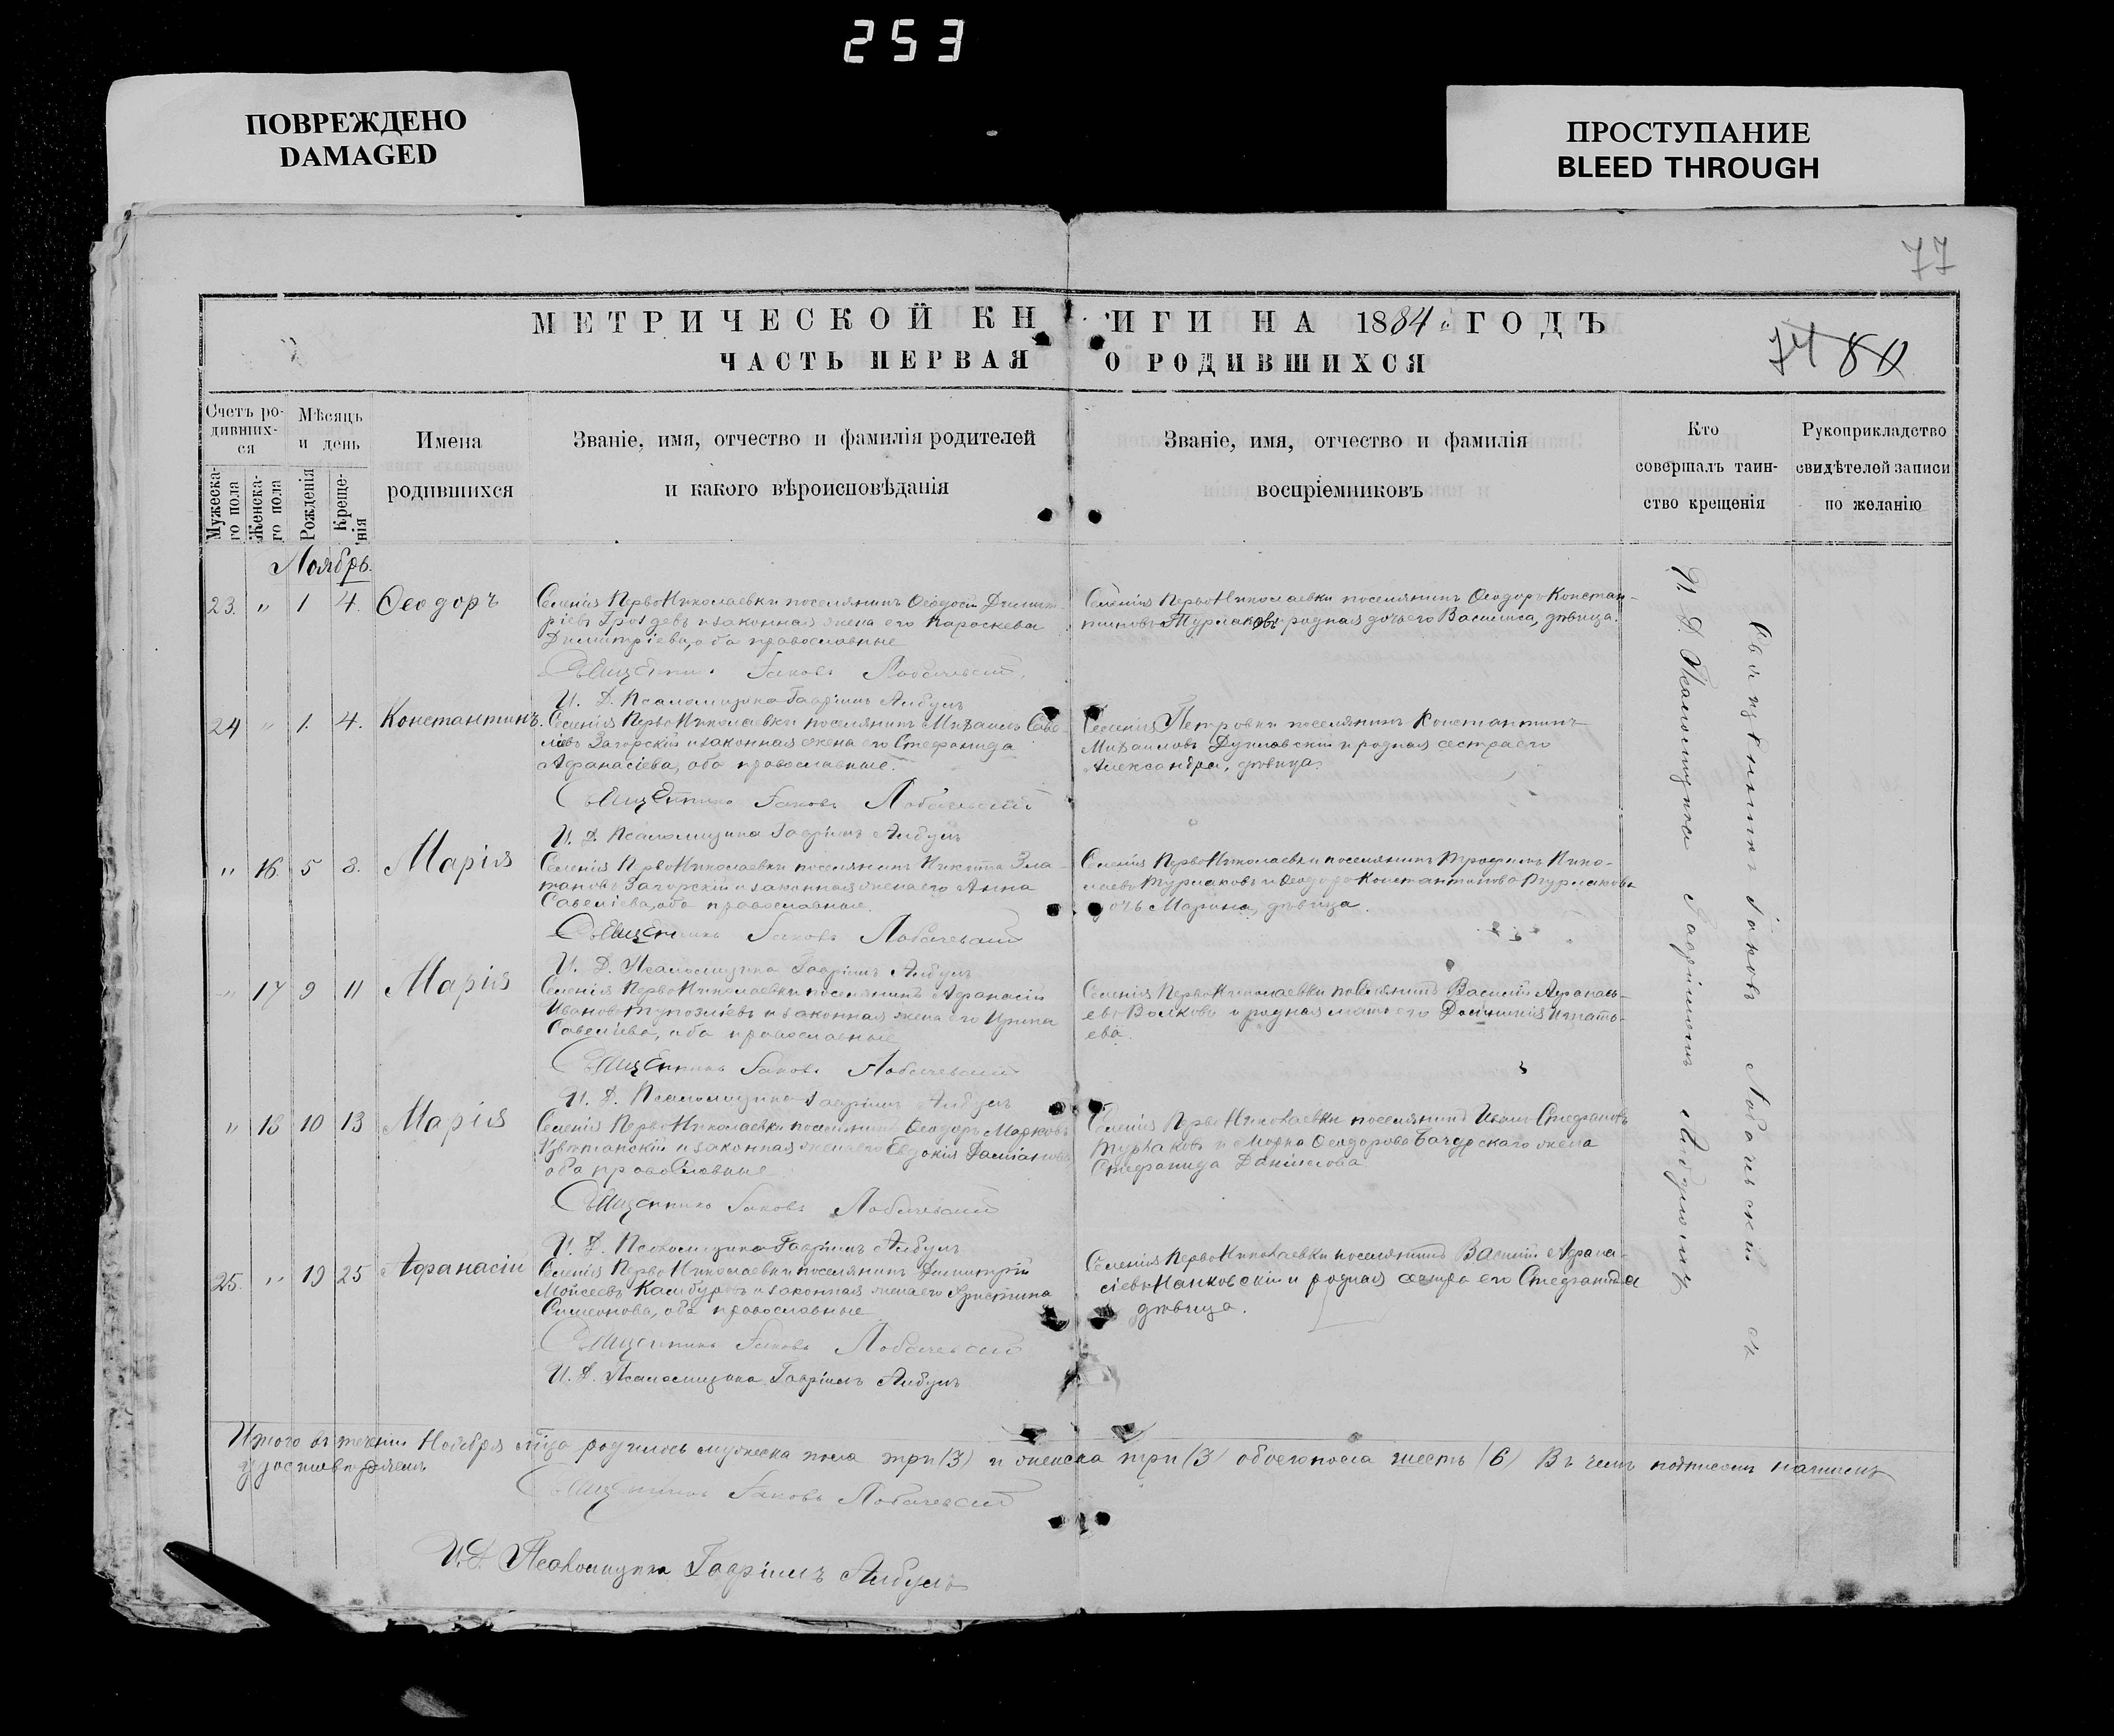 253
ПОВРЕЖДЕНО
DAMAGED
ПРОСТУПАНИЕ
BLEED THROUGH
77
МЕТРИЧЕСКОЙ КНИГИ НА 1884 ГОДЪ
ЧАСТЬ ПЕРВАЯ О РОДИВШИХСЯ
74 80
Счетъ ро-
дивших-
ся
Мужеска-
го пола
Женска-
го пола
Мѣсяцъ
и день
Рожденія
Креще-
нія
Имена
родившихся
Званіе, имя, отчество и фамилія родителей
и какого вѣроисповѣданія
Званіе, имя, отчество и фамилія
воспріемниковъ
Кто
совершалъ таин-
ство крещенія
Рукоприкладство
свидѣтелей записи
по желанію
Ноябрь.
23. " 1 4. Ѳеодоръ
Селенія ПервоНиколаевки поселянинъ Ѳеодосій Димит-
ріевъ и законная жена его Параскева
Димитріева, оба православные
Селенія ПервоНиколаевки поселянинъ Ѳеодоръ Констан-
тиновъ Турлаковъ родная дочь его Василиса, дѣвица.
Священникъ Іаковъ Лобачевскій
И. Д. Псаломщика Гавріилъ Албулъ
24 " 1. 4. Константинъ.
Селенія ПервоНиколаевки поселянинъ Михаилъ Саве-
ліевъ Загорскій и законная жена его Стефанида
Афанасіева, оба православные.
Селенія Петровки поселянинъ Константинъ
Михаиловъ и родная сестра его
Александра, дѣвица.
Священникъ Іаковъ Лобачевскій
И. Д. Псаломщика Гавріилъ Албулъ
" 16. 5 8. Марія
Селенія ПервоНиколаевки поселянинъ Никита Зла-
тановъ Загорскій и законная жена его Анна
Савеліева, оба православные.
Селенія ПервоНиколаевки поселянинъ Трофимъ Нико-
лаевъ Турлаковъ и Ѳеодора Константинова Турлакова
дочь Марина, дѣвица.
Священникъ Іаковъ Лобачевскій
И. Д. Псаломщика Гавріилъ Албулъ
" 17 9 11 Марія
Селенія ПервоНиколаевки поселянинъ Афанасій
Ивановъ и законная жена его Ирина
Савеліева, оба православные
Селенія ПервоНиколаевки поселянинъ Василій Афанась-
евъ Волковъ и родная мать его Домникія Игнать-
ева.
Священникъ Іаковъ Лобачевскій
И. Д. Псаломщика Гавріилъ Албулъ
" 18 10 13 Марія
Селенія ПервоНиколаевки поселянинъ Ѳеодоръ Марковъ
и законная жена его Евдокія Даміанова
оба православные
Селенія ПервоНиколаевки поселянинъ Иванъ Стефановъ
Турлаковъ и Марка Ѳеодорова жена
Стефанида Даниилова.
Священникъ Іаковъ Лобачевскій
И. Д. Псаломщика Гавріилъ Албулъ
25. " 19 25 Афанасій
Селенія ПервоНиколаевки поселянинъ Димитрій
Моисеевъ Камбуръ и законная жена его Христина
Симеонова, оба православные
Селенія ПервоНиколаевки поселянинъ Василій Афана-
сіевъ и родная сестра его Стефанида
дѣвица.
Священникъ Іаковъ Лобачевскій
И. Д. Псаломщика Гавріилъ Албулъ
Священникъ Іаковъ Лобачевскій съ
И. Д. Псаломщика Гавріиломъ Албуломъ
Итого въ теченіи Ноября м-ца родилось мужеска пола три (3) и женска три (3) обоего пола шесть (6) Въ чемъ подписомъ нашимъ
удостовѣряемъ
Священникъ Іаковъ Лобачевскій
И. Д. Псаломщика Гавріилъ Албулъ